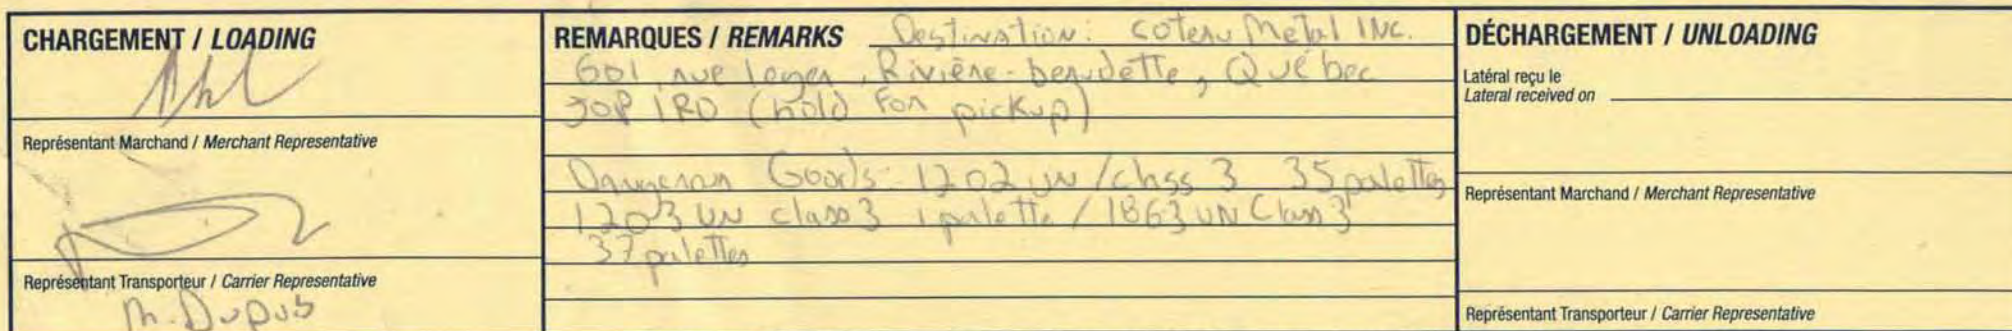 CHARGEMENT / LOADING
Représentant Marchand / Merchant Representative
Représentant Transporteur / Carrier Representative
M. Dupuis
REMARQUES / REMARKS Destination: coteau Metal INC.
601, rue Leger, Rivière-beaudette, Québec
(hold For pickup)
Dangerous Goods- 1202 UN / class 3 35 palettes
1203 UN class 3 1 palette / 1863 UN Class 3
37 palettes
DÉCHARGEMENT / UNLOADING
Latéral reçu le
Lateral received on
Représentant Marchand / Merchant Representative
Représentant Transporteur / Carrier Representative